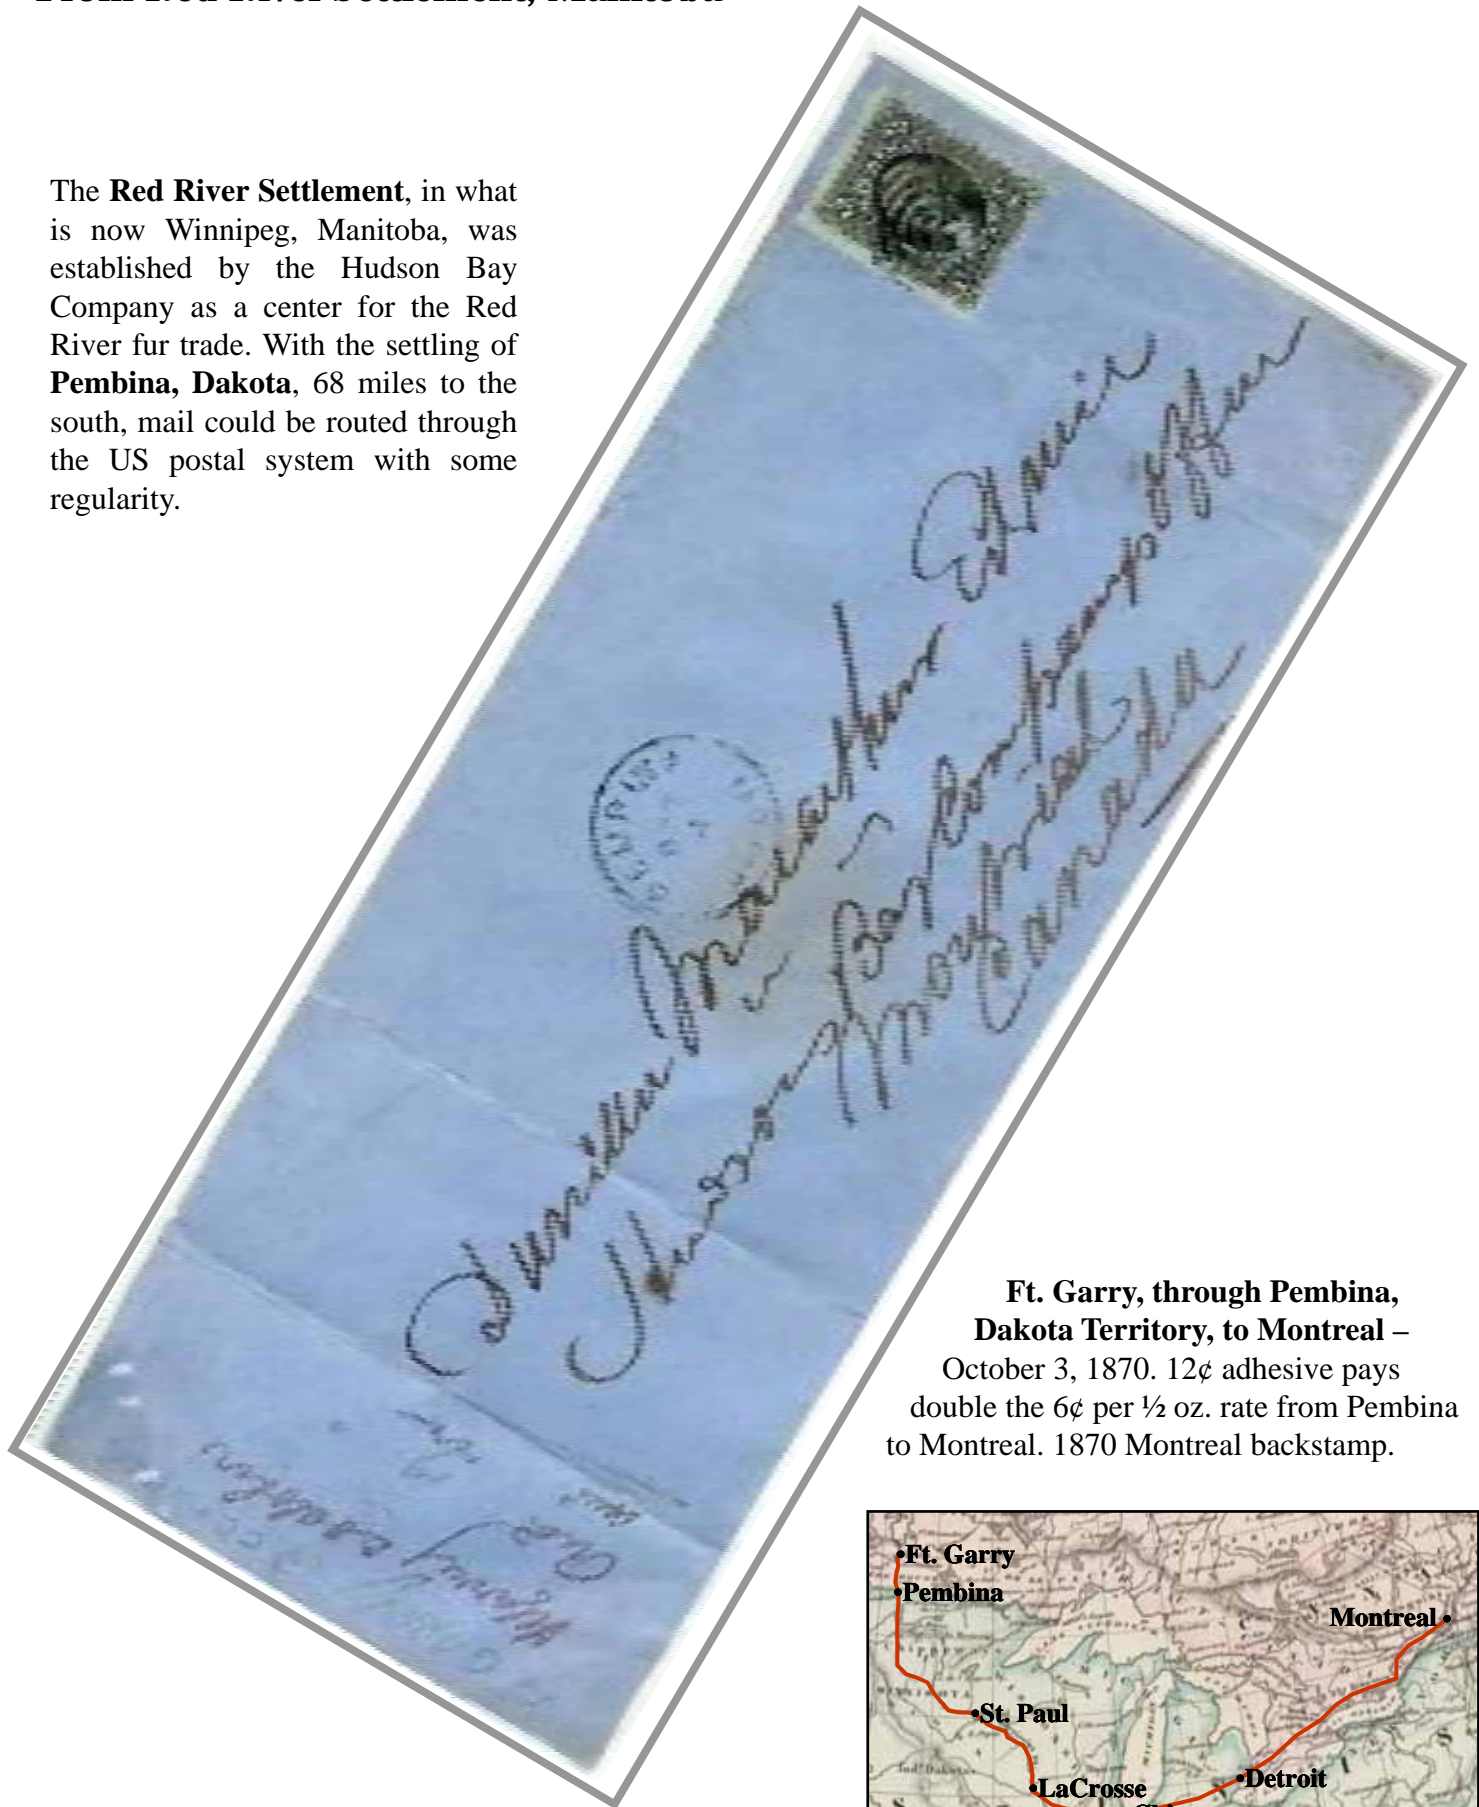 From Red River Settlement, Manitoba
The Red River Settlement, in what
is now Winnipeg, Manitoba, was
established by the Hudson Bay
Company as a center for the Red
River fur trade. With the settling of
Pembina, Dakota, 68 miles to the
south, mail could be routed through
the US postal system with some
regularity.
PEMBINA
Esquir
Bay Company Office
Montreal
Canada
Ft. Garry, through Pembina,
Dakota Territory, to Montreal –
October 3, 1870. 12¢ adhesive pays
double the 6¢ per ½ oz. rate from Pembina
to Montreal. 1870 Montreal backstamp.
Ft. Garry
Pembina
Montreal
St. Paul
LaCrosse
Detroit